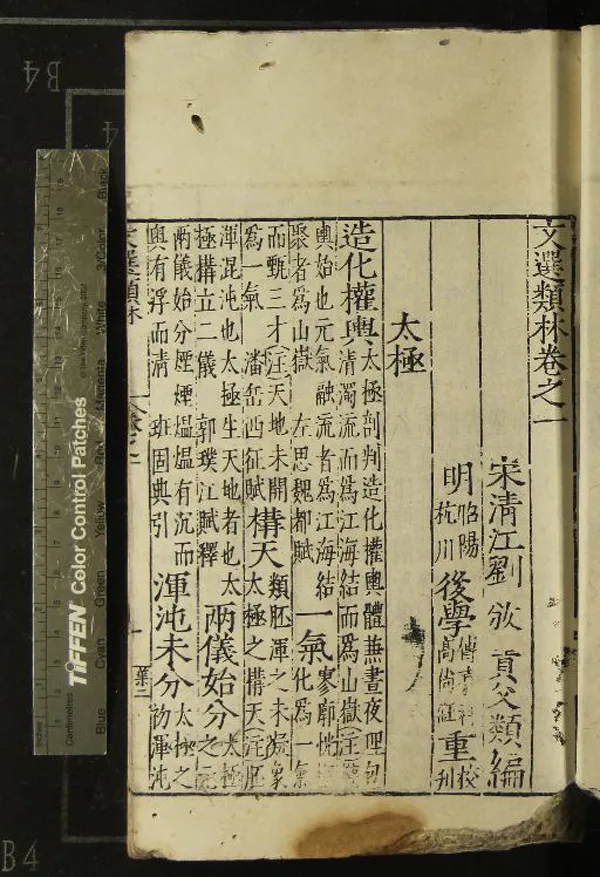 文選類林卷之一
宋清江劉攽貢父類編
明臨陽
杭川
後學
高尚
重
校
刊
太極
造化權輿
太極剖判造化權輿體兼晝夜理包
清濁流而為江海結而為山嶽(注)
輿始也元氣融流者為江海結
聚者為山嶽 左思魏都賦
一氣
寥廓恍
化為一氣
而甄三才(注)天地未開
為一氣 潘岳西征賦
構天
類胚渾之未凝象
太極之構天(注)胚
渾混沌也太極生天地者也太
極構立二儀 郭璞江賦釋
兩儀始分
太極
之元
兩儀始分煙煙熅熅有沉而
奧有浮而清 班固典引
渾沌未分
太極之
初渾沌
文選類林
卷之一
一
葉二
B4
4
B4
TIFFEN Color Control Patches
Centimetres
Inches
Blue
Cyan
Green
Yellow
Red
Magenta
White
3/Color
Black